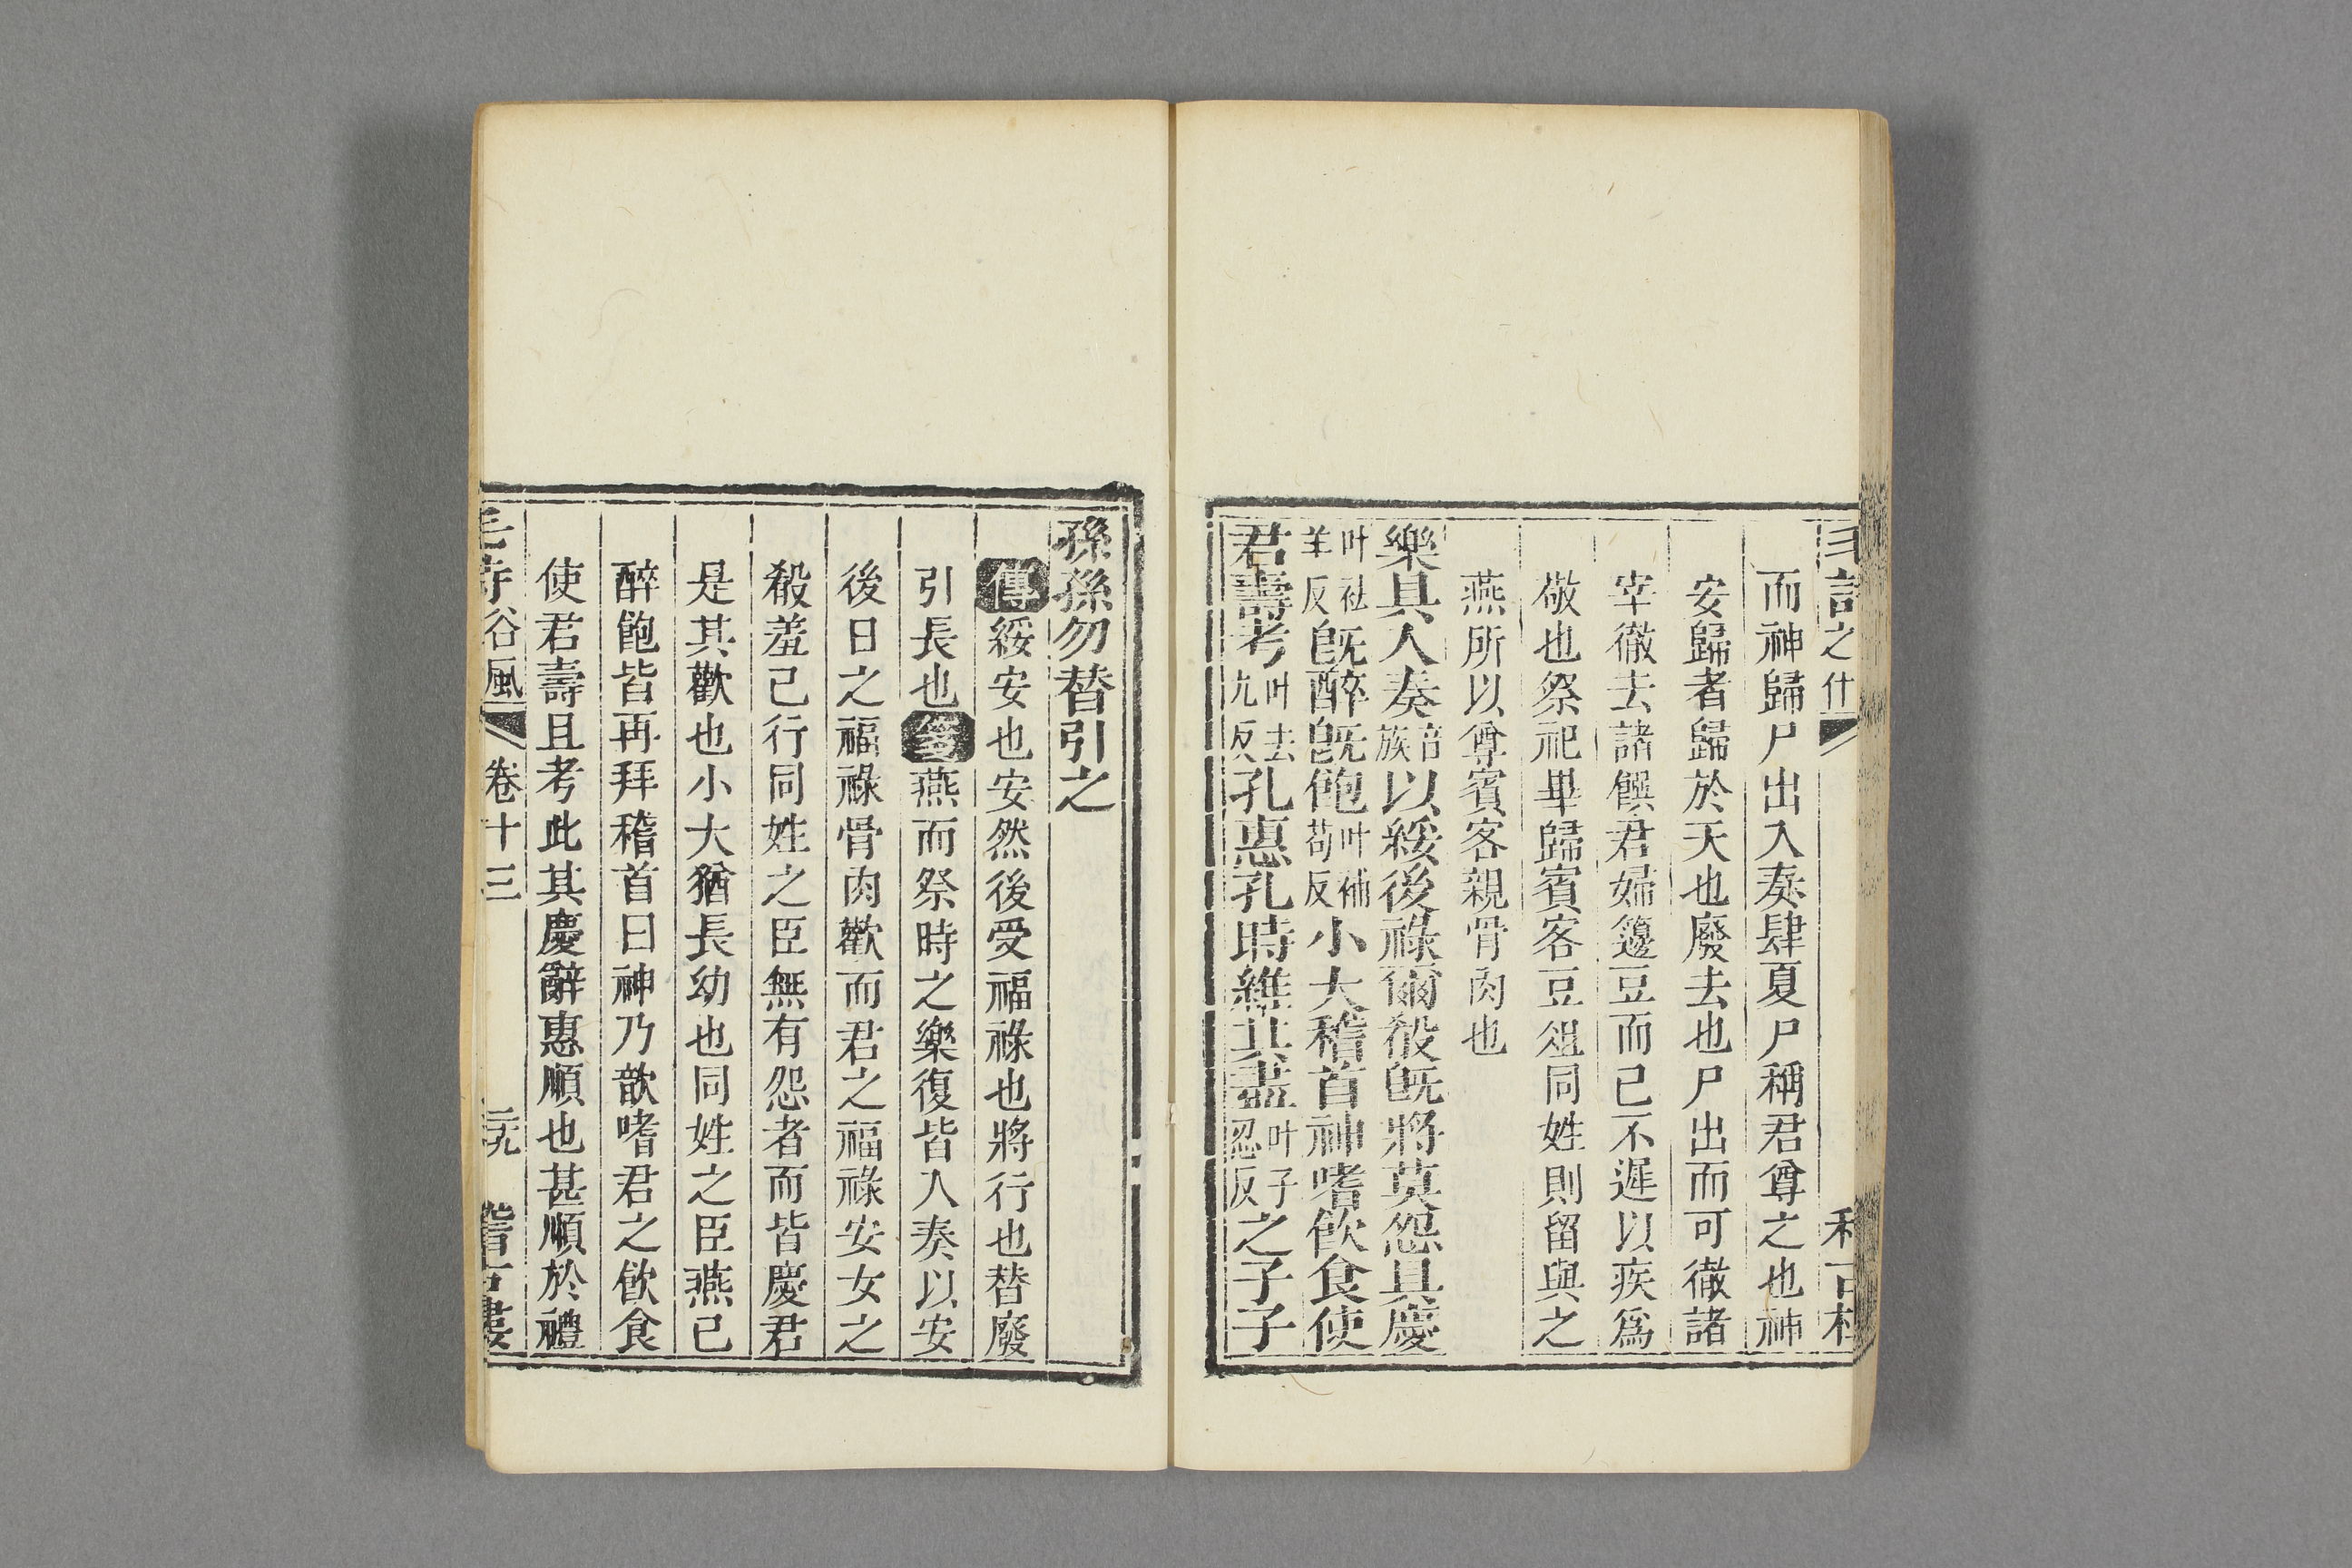 毛詩之什
而神歸尸出入奏肆夏尸稱君尊之也神
安歸者歸於天也廢去也尸出而可徹諸
宰徹去諸饌君婦籩豆而已不遲以疾爲
敬也祭祀畢歸賓客豆俎同姓則留與之
燕所以尊賓客親骨肉也
樂具入奏音族以綏後祿爾殽旣將莫怨具慶
叶祛羊反旣醉旣飽叶補苟反小大稽首神嗜飮食使
君壽考叶去九反孔惠孔時維其盡叶子忍反之子子
孫孫勿替引之
傳綏安也安然後受福祿也將行也替廢
引長也箋燕而祭時之樂復皆入奏以安
後日之福祿骨肉歡而君之福祿安女之
殽羞已行同姓之臣無有怨者而皆慶君
是其歡也小大猶長幼也同姓之臣燕已
醉飽皆再拜稽首曰神乃歆嗜君之飮食
使君壽且考此其慶辭惠順也甚順於禮
毛詩谷風 卷十三 二九 稽古樓